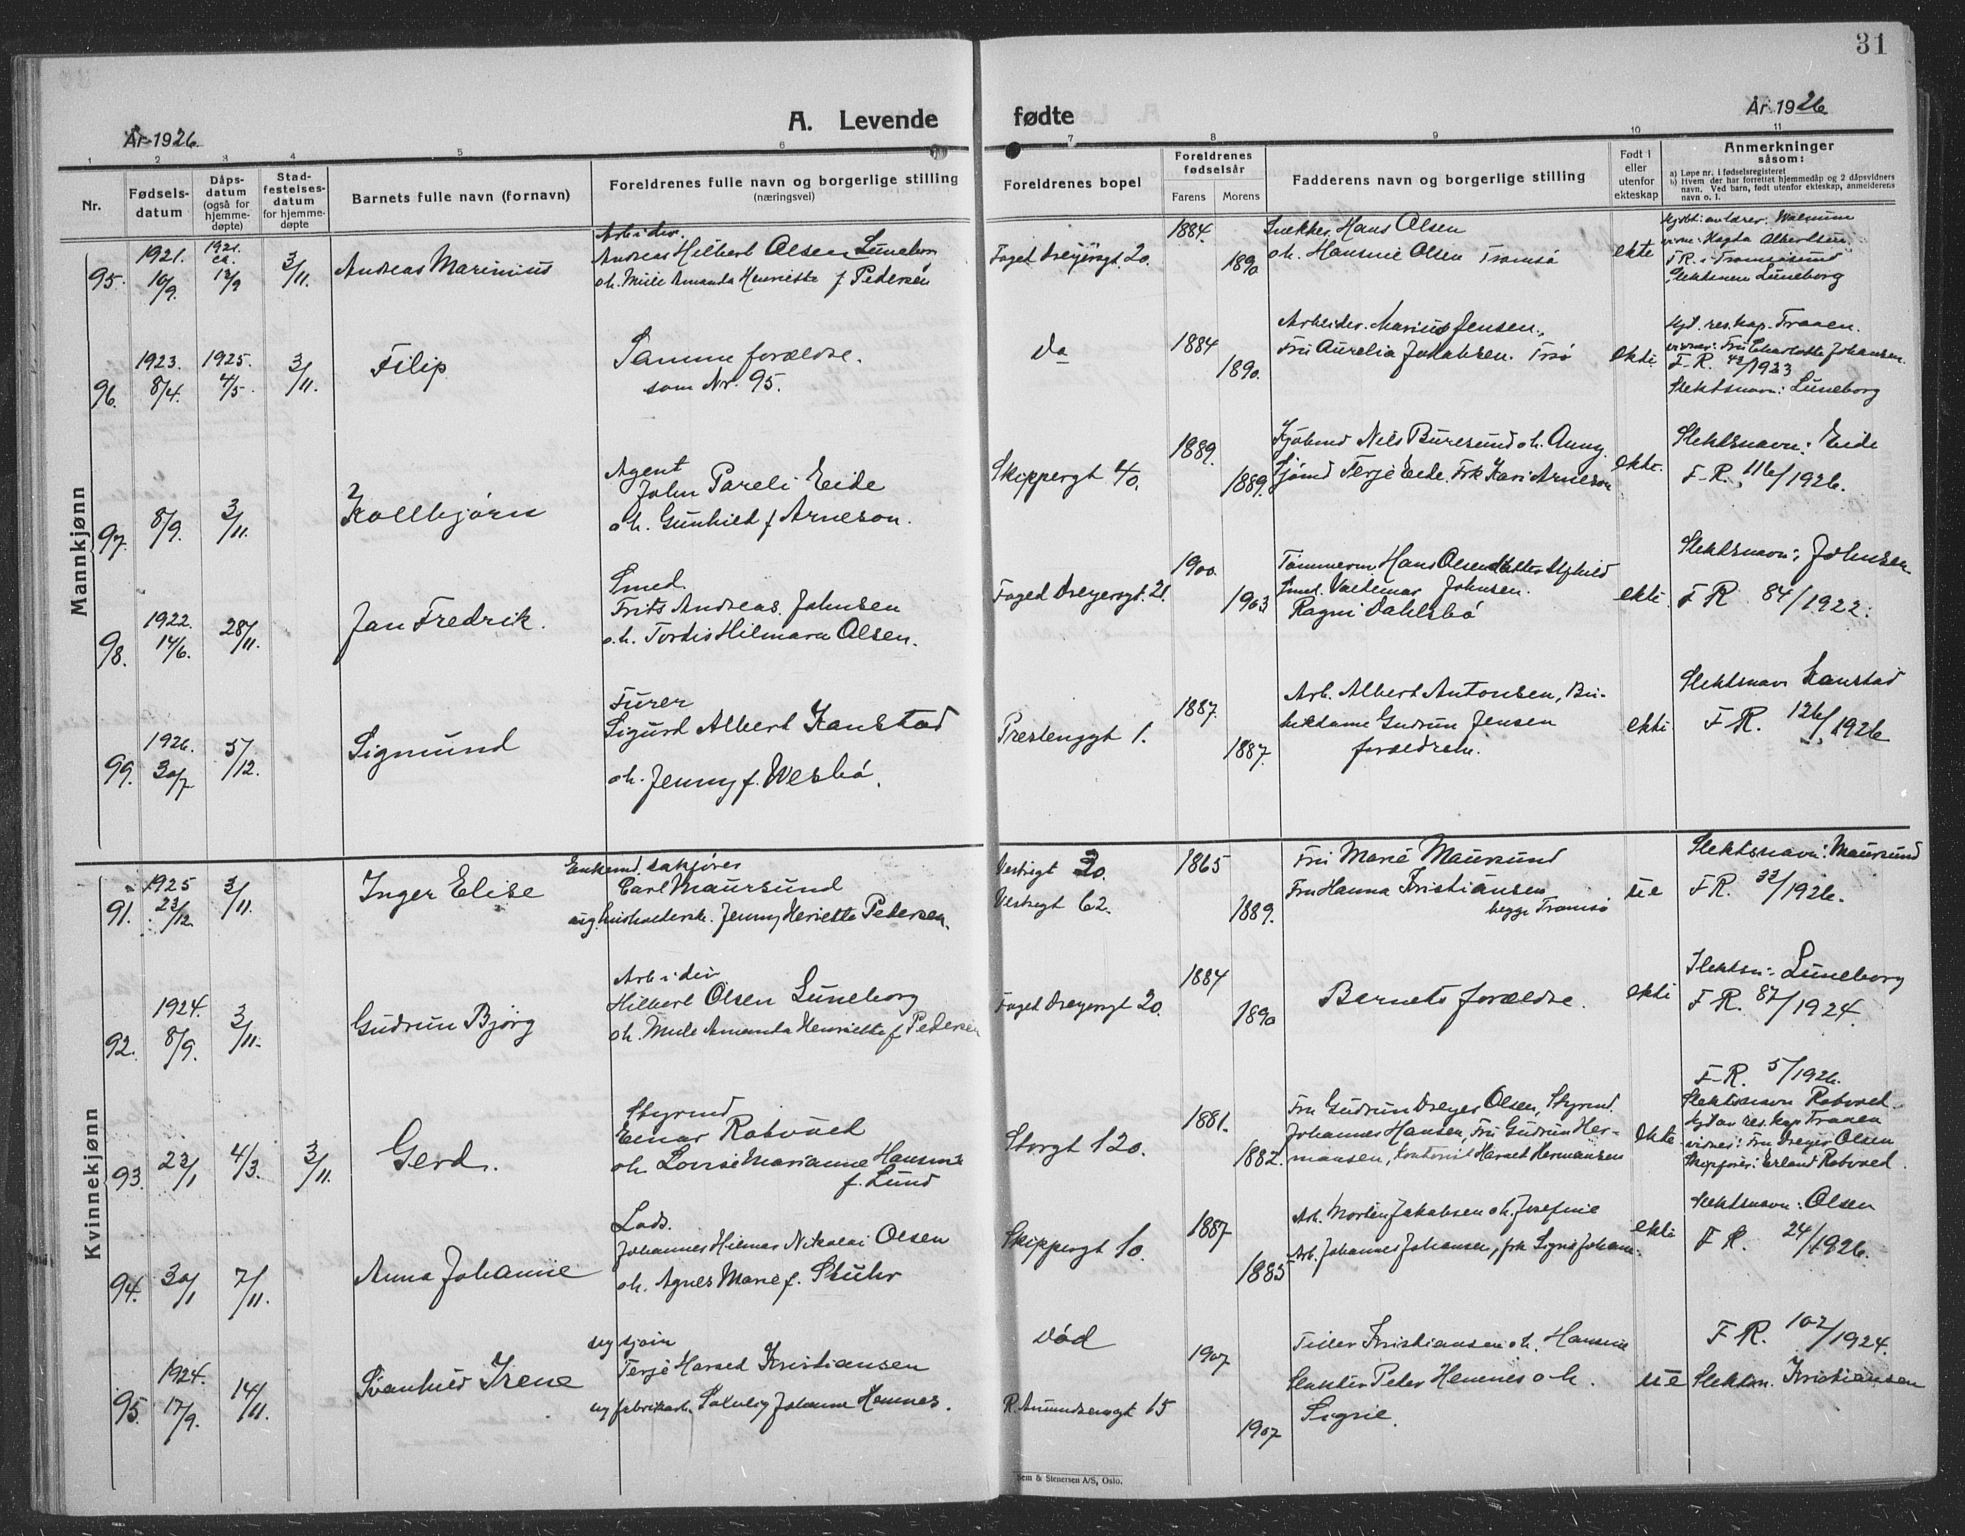 31
År 1926.
A. Levende
fødte
År 1926
1 2 3 4 5 6 7 8 9 10 11
Nr.
Fødsels-
datum
Dåps-
datum
(også for
hjemme-
døpte)
Stad-
festelses-
datum
for hjemme-
døpte
Barnets fulle navn (fornavn)
Foreldrenes fulle navn og borgerlige stilling
(næringsvei)
Foreldrenes bopel
Foreldrenes
fødselsår
Farens
Morens
Fadderens navn og borgerlige stilling
Født i
eller
utenfor
ekteskap
Anmerkninger
såsom:
a) Løpe nr. i fødselsregisteret
b) Hvem der har forrettet hjemmedåp og 2 dåpsvidners
navn. Ved barn, født utenfor ekteskap, anmelderens
navn o. l.
Mannkjønn
95. 1921. 10/9. 1921. ca. 12/9 3/11. Andreas Marinius
Arbeider.
Andreas Hilbert Olsen Luneborg
o h. Mille Amanda Henriette f Pedersen
Foged Dreyersgt. 20. 1884. 1890
Snekker Hans Olsen
o h. Hansine Olsen Tromsø
ekte
Slektsnavn Luneborg
96. 1923. 8/4. 1925. 4/5. 3/11. Filip
Samme forældre.
som Nr. 95.
da 1884 1890.
Arbeider. Marius Jensen.
Fru Aurelia Jakobsen. Trsø
ekte.
hjd. res. kap. Traaen.
vidner: Fru Charlotte Johansen.
F-R. 42/1923
Slektsnavn: Luneborg
97. 8/9. 3/11. Kollbjørn
Agent
John Pareli Eide
o h. Gunhild f Arneson.
Skippergt 40. 1889. 1889.
Kjøbmd Nils Buresund o h. Anny.
Sjømd Terje Eide. Frk Kari Arneson
ekte.
Slektsnavn: Eide
F-R. 116/1926.
98. 1922. 14/6. 28/11. Jan Fredrik.
Smed.
Frits Andreas. Johnsen
o.h. Tordis Hilmara Olsen.
Foged Dreyersgt. 21. 1900. 1903
Tømmerm Hans Olsen Datter Alfhild
Smed. Valdemar Johnsen.
Ragni Dahlsbö
ekte
Slektsnavn: Johnsen
F R 84/1922.
99. 1926. 30/7 5/12. Sigmund
Furer
Sigurd Albert Kanstad
o h. Jenny f. Wesbø.
Prestenggt 1. 1887. 1887.
Arb. Albert Antonsen, Bu-
tiksdame Gudrun Jensen
forældrene.
ekte
Slektsnavn Kanstad
F R. 126/1926
Kvinnekjønn
91. 1925 23/12. 3/11. Inger Elise
Enkemd. sakfører
Carl Maursund
ug. husholdersk. Jenny Henriette Pedersen.
Vestregt 20.
Vestregt 62. 1865 1889.
Fru Marie Maursund
Fru Hanna Kristiansen
begge Tromsø
ue
Slektsnavn: Maursund
F R. 33/1926.
92. 1924. 8/9. 3/11. Gudrun Bjørg
Arbeider
Hilbert Olsen Luneborg
o h. Mille Amanda Henriette f Pedersen
Foged Dreyersgt 20. 1884 1890
Barnets forældre.
ekte
Slektsn: Luneborg
F R. 87/1924.
93. 23/1 4/3. 3/11. Gerd.
Styrmd
Einar Robvoed
o h. Lovise Marianne Hansine
f. Lund
Storgt 120. 1881. 1882.
Fru Gudrun Dreyer Olsen, Styrmd.
Johannes Hansen, Fru Gudrun Her-
mansen, Kontorist Harald Hermansen
ekte
F-R. 5/1926.
Slektsnavn Robvoed.
hjd av res. kap Traaen
vidner: Fru Dreyer Olsen
Skipfører: Erland Robvoed.
94. 30/1 7/11. Anna Johanne
Lods.
Johannes Hilmar Nikolai Olsen
o h. Agnes Marie f. Stuhr
Skippergt 10. 1887 1885
Arb. Morten Jakobsen o h. Josefine
Arb. Johannes Johansen, frk Signe Johans.
ekte
Slektsnavn: Olsen
F R. 24/1926.
95. 1924. 17/9. 14/11. Svanhild Irene
Terje Harald Kristiansen
ug fabrikarb. Solveig Johanne Hemnes.
død
R. Amundsensgt 15 1907 1907
Kristiansen o h. Hansine
Slakter Peter Hemnes o h.
Sigrid.
ue
F R. 102/1924.
Slektsn. Kristiansen
Sem & Stenersen A/S, Oslo.